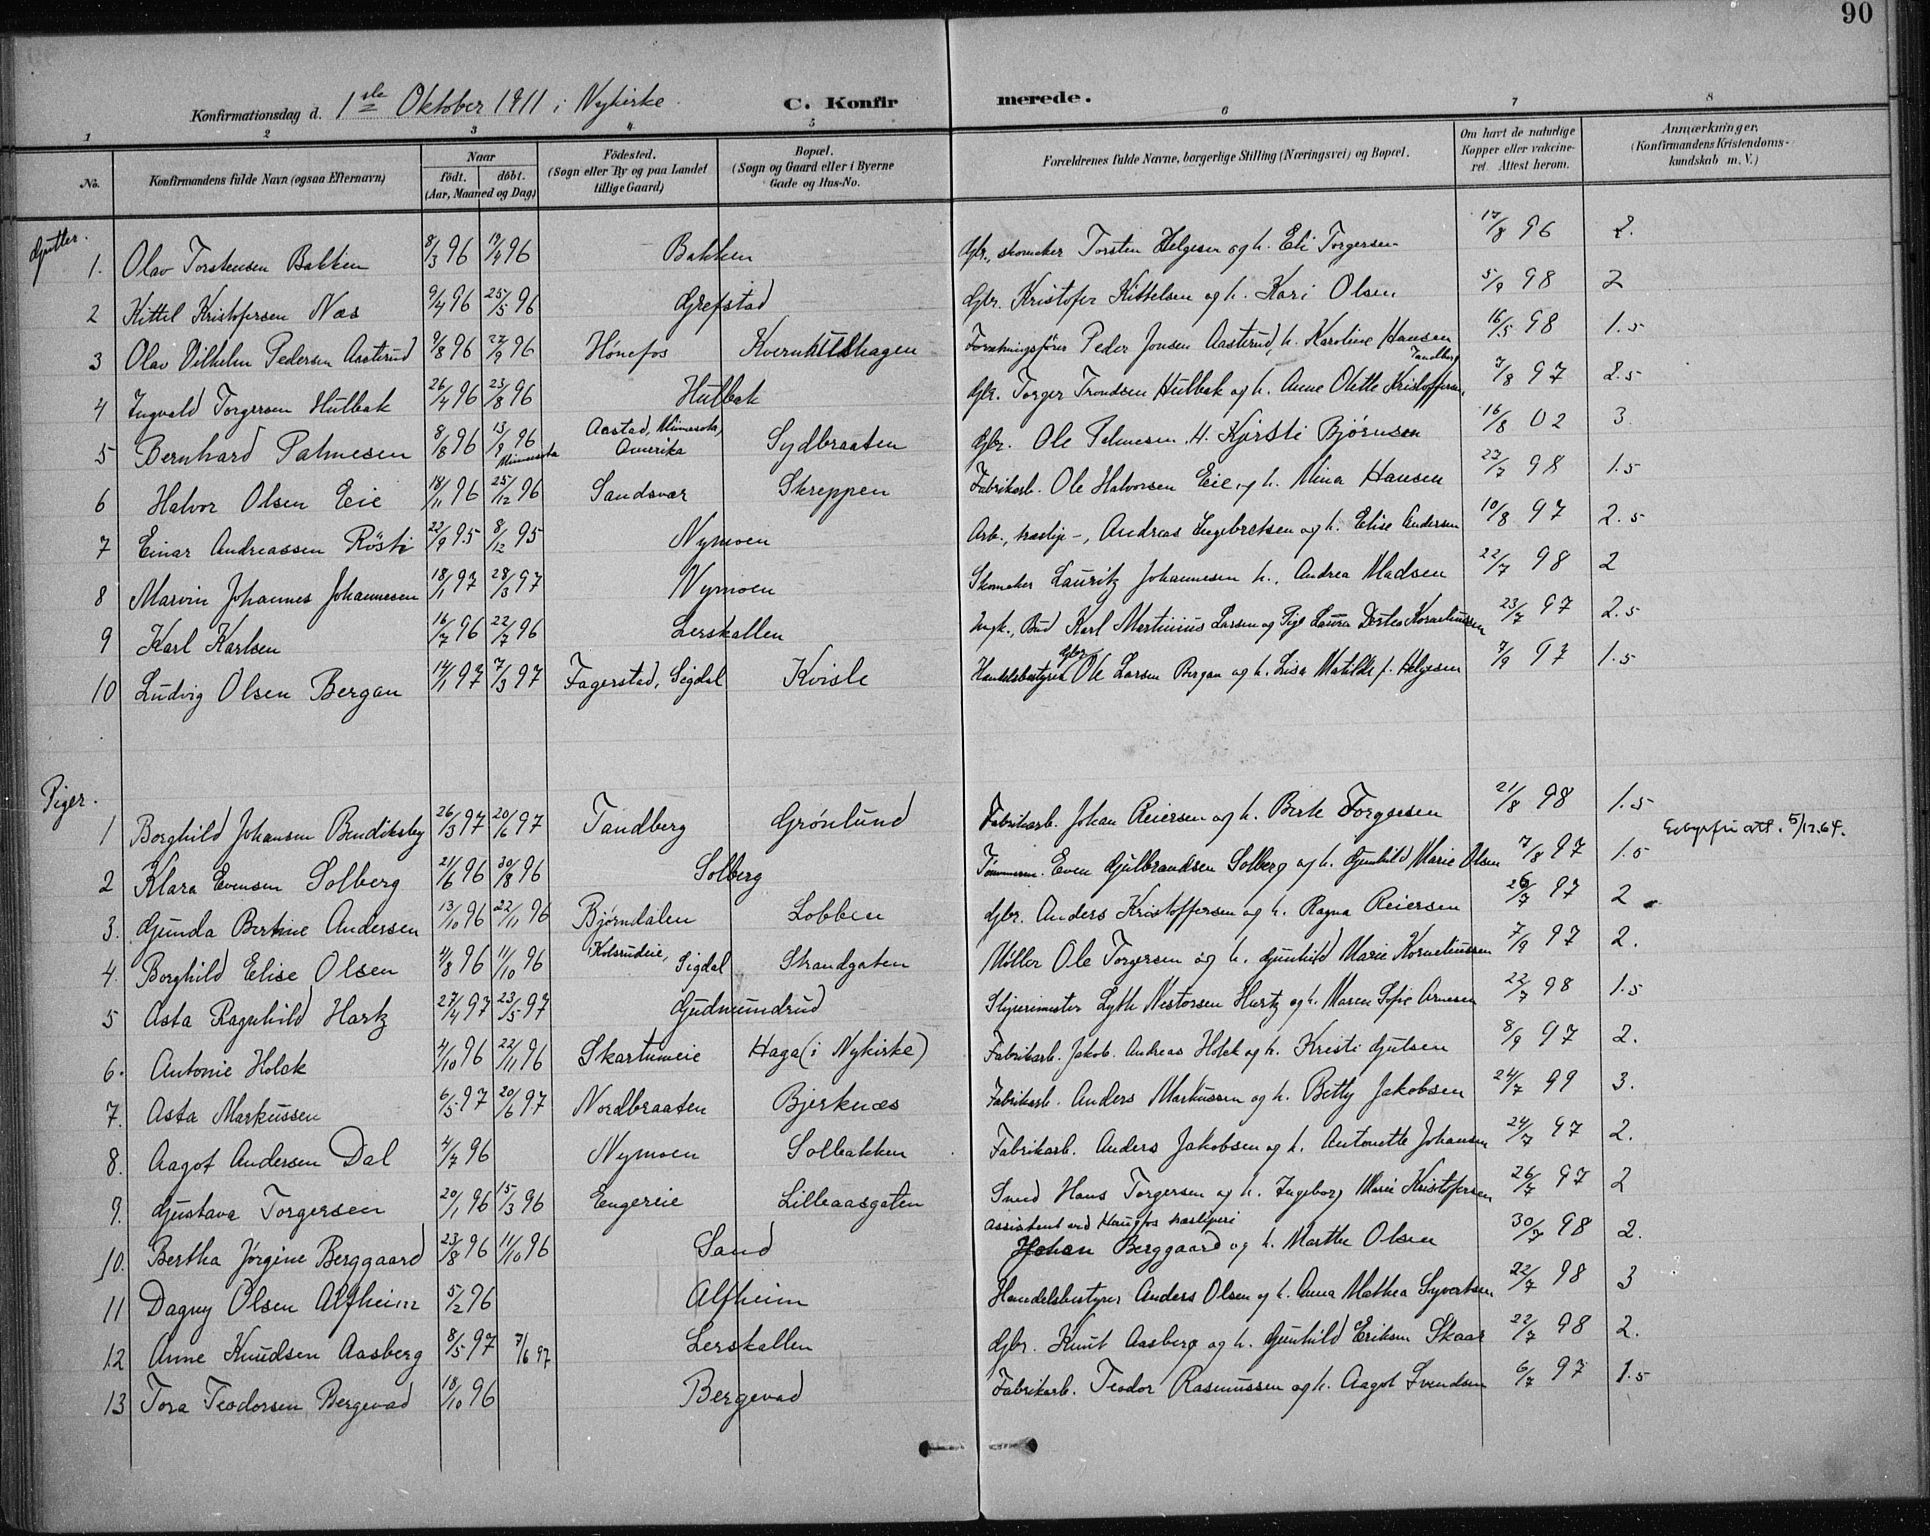 90
Konfirmationsdag d. 1ste Oktober 1911 i Nykirke. C. Konfirmerede.
1 2 3 4 5 6 7 8
No. Konfirmandens fulde Navn (ogsaa Efternavn) Naar født. døbt. (Aar, Maaned og Dag) Fødested. (Sogn eller By og paa Landet tillige Gaard) Bopæl. (Sogn og Gaard eller i Byerne Gade og Hus-No. Forældrenes fulde Navne, borgerlige Stilling (Næringsvei) og Bopæl. Om havt de naturlige Kopper eller vakcineret. Attest herom. Anmærkninger. (Konfirmandens Kristendomskundskab m. V.)
Gutter.
1. Olav Torstensen Bakken 8/3 96 19/4 96 Bakken Gbr., skomaker Torsten Helgesen og h. Eli Torgersen 17/8 96 2.
2 Kittel Kristofersen Næs 9/4 96 25/5 96 Grefstad Gbr. Kristofer Kittelsen og h. Kari Olsen 5/9 98 2
3 Olav Vilhelm Pedersen Aasterud 9/8 96 27/9 96 Hønefos Kvernhushagen Forretningsfører Peder Jonsen Aasterud, h. Karoline Hansen Tandberg 16/5 98 1.5
4 Ingvald Torgersen Hulbak 26/4 96 23/8 96 Hulbak Gbr. Torger Trondsen Hulbak og h. Anne Olette Kristoffersen 7/8 97 2.5
5 Bernhard Palmesen 8/8 96 13/9 96 Minnesota Aastad, Minnesota, Amerika Sydbraaten Gbr. Ole Palmesen. H. Kjersti Bjørnsen 16/8 02 3.
6 Halvor Olsen Eie 18/11 96 25/12 96 Sandsvær Skreppen Fabrikarb. Ole Halvorsen Eie og h. Mina Hansen 23/7 98 1.5
7 Einar Andreassen Røsti 22/9 95 8/12 95 Nymoen Arb., træslip -, Andreas Engebretsen og h. Elise Andersen 10/8 97 2.5
8 Marvin Johannes Johannesen 18/1 97 28/3 97 Nymoen Skomaker Lauritz Johannesen h. Andrea Madsen 22/7 98 2
9 Karl Karlsen 16/7 96 22/7 96 Lerskallen Ungk., Bud Karl Martinius Larsen og Pige Laura Dortea Korneliussen 23/7 97 2.5
10 Ludvig Olsen Bergan 14/1 97 7/3 97 Fagerstad, Sigdal Kvisle Handelsbestyrer Gbr. Ole Larsen Bergan og h. Lisa Matilde f. Helgesen 7/9 97 1.5
Piger.
1 Borghild Johansen Bendiksby 26/3 97 20/6 97 Tandberg Grønlund Fabrikarb. Johan Reiersen og h. Birte Torgersen 21/8 98 1.5
Gebyrfri att. 5/12.64.
2 Klara Evensen Solberg 21/6 96 30/8 96 Solberg Tømmerm. Even Gulbrandsen Solberg og h. Gunhild Marie Olsen 7/8 97 1.5
3. Gunda Bertine Andersen 13/10 96 22/11 96 Bjørndalen Lobben Gbr. Anders Kristoffersen og h. Ragna Reiersen 26/7 97 2
4. Borghild Elise Olsen 4/8 96 11/10 96 Kolsrudeie, Sigdal Strandgaten Møller Ole Torgersen og h. Gunhild Marie Korneliussen 7/9 97 2.
5 Asta Ragnhild Hartz 27/4 97 23/5 97 Gudmundrud Sliperimester Lyth Nestorsen Hartz og h. Maren Sofie Arnesen 22/7 98 1.5
6. Antonie Holck 4/10 96 22/11 96 Skartumeie Haga (i Nykirke) Fabrikarb. Jakob Andreas Holck og h. Kristi Gutsen 8/9 97 2.
7. Asta Markussen 6/5 97 20/6 97 Nordbraaten Bjerknes Fabrikarb. Anders Markussen og h. Betty Jakobsen 24/7 99 3.
8. Aagot Andersen Dal 4/7 96 Nymoen Solbakken Fabrikarb. Anders Jakobsen og h. Antonette Johansen 24/7 97 2.
9. Gustava Torgersen 20/1 96 15/3 96 Engereie Lilleaasgaten Smed Hans Torgersen og h. Ingeborg Marie Kristofersen 26/7 97 2
10. Bertha Jørgine Berggaard 23/8 96 11/10 96 Sand Assistent ved Haugfos træsliperi Johan Berggaard og h. Marthe Olsen 30/7 98 2.
11 Dagny Olsen Alfheim 5/2 96 Alfheim Handelsbestyrer Anders Olsen og h. Anna Mathea Syvertsen 22/7 98 3
12 Anne Knudsen Aasberg 8/5 97 7/6 97 Lerskallen Gbr. Knut Aasberg og h. Gunhild Eriksen Skaar 22/7 98 2.
13 Tora Teodorsen Bergevad 18/10 96 Bergevad Fabrikarb. Teodor Rasmussen og h. Aagot Svendsen 6/7 97 1.5